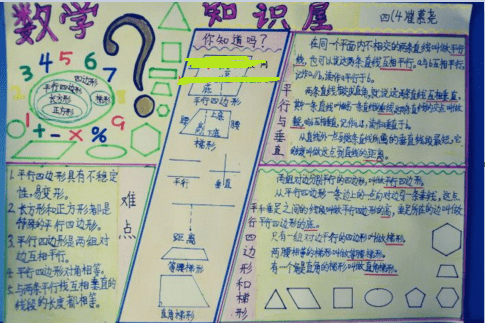 数学
知识屋
3 4 5 6 7
四边形
平行四边形
长方形
正方形
梯形
1 + - × % 9
你知道吗？
底
平行四边形
上底
腰
腰
下底
梯形
平行
垂直
距离
等腰梯形
直角梯形
难点
1.平行四边形具有不稳定
性,易变形。
2.长方形和正方形都是
特殊的平行四边形。
3.平行四边形是两组对
边互相平行。
4.平行四边形对角相等。
5.与两条平行线互相垂直的
线段的长度都相等。
平行与垂直
在同一个平面内不相交的两条直线叫做平行
线,也可以说这两条直线互相平行。
两条直线相交成直角,就说这两条直线互相垂直,
从直线外一点到这条直线所画的垂直线段最短,它
的长度叫做这点到直线的距离。
平行四边形和梯形
两组对边分别平行的四边形,叫做平行四边形。
从平行四边形一条边上的一点到对边引一条垂线,这点
和垂足之间的线段叫做平行四边形的高,垂足所在的边叫做
平行四边形的底。
只有一组对边平行的四边形叫做梯形。
两腰相等的梯形叫做等腰梯形。
有一个角是直角的梯形叫做直角梯形。